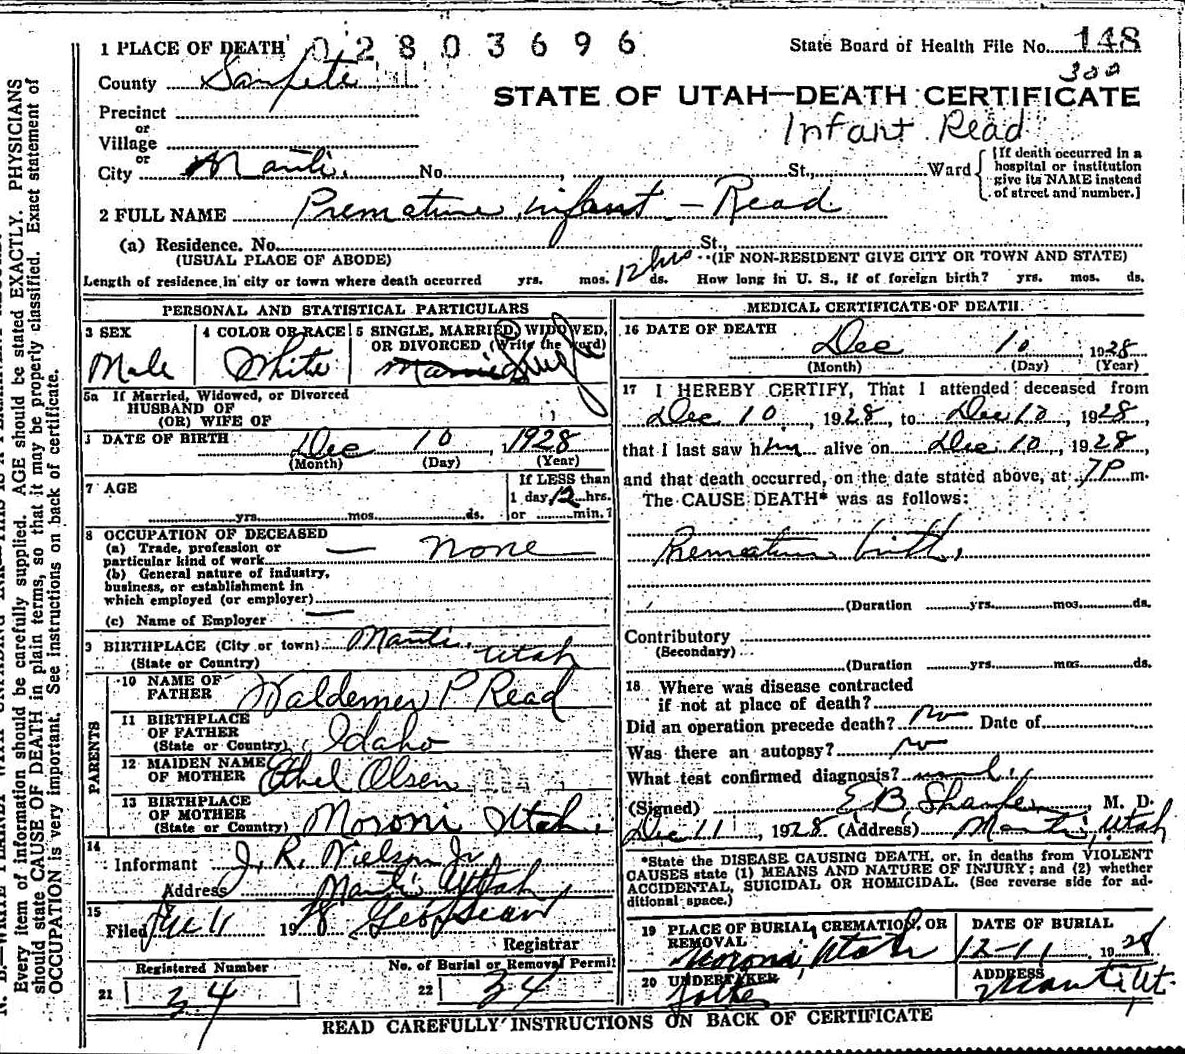 1 PLACE OF DEATH 02803696 State Board of Health File No. 148
County Sanpete 300
STATE OF UTAH—DEATH CERTIFICATE
Precinct
or
Village
Infant Read
or
City Manti. No. , St., Ward
[If death occurred in a hospital or institution give its NAME instead of street and number.]
2 FULL NAME Premature infant - Read
(a) Residence. No. St.,
(USUAL PLACE OF ABODE) (IF NON-RESIDENT GIVE CITY OR TOWN AND STATE)
Length of residence in city or town where death occurred yrs. mos. 12 hrs ds. How long in U. S., if of foreign birth? yrs. mos. ds.
PERSONAL AND STATISTICAL PARTICULARS
3 SEX 4 COLOR OR RACE 5 SINGLE, MARRIED, WIDOWED, OR DIVORCED (Write the word)
Male White
5a If Married, Widowed, or Divorced
HUSBAND OF
(OR) WIFE OF
DATE OF BIRTH Dec 10, 1928
(Month) (Day) (Year)
7 AGE yrs. mos. ds.
If LESS than
1 day, 12 hrs.
or min.?
8 OCCUPATION OF DECEASED
(a) Trade, profession or
particular kind of work — none
(b) General nature of industry,
business, or establishment in
which employed (or employer)
(c) Name of Employer —
9 BIRTHPLACE (City or town) Manti,
(State or Country) Utah
PARENTS
10 NAME OF
FATHER Waldemer P Read
11 BIRTHPLACE
OF FATHER
(State or Country) Idaho
12 MAIDEN NAME
OF MOTHER Ethel Olsen
13 BIRTHPLACE
OF MOTHER
(State or Country) Moroni Utah.
14
Informant J. R. Nielson Jr
Address Manti Utah
15
Filed Dec 11 1928
Registrar
Registered Number No. of Burial or Removal Permit
21 34 22 34
MEDICAL CERTIFICATE OF DEATH
16 DATE OF DEATH
Dec 10 1928
(Month) (Day) (Year)
17 I HEREBY CERTIFY, That I attended deceased from
Dec 10, 1928, to Dec 10, 1928
that I last saw him alive on Dec. 10, 1928
and that death occurred, on the date stated above, at 7 P m.
The CAUSE DEATH* was as follows:
Premature birth.
(Duration yrs. mos. ds.
Contributory
(Secondary)
(Duration yrs. mos. ds.
18 Where was disease contracted
if not at place of death?
Did an operation precede death? no Date of
Was there an autopsy? no
What test confirmed diagnosis?
(Signed) E. B. , M. D.
Dec 11, 1928 (Address) Manti, Utah
*State the DISEASE CAUSING DEATH, or, in deaths from VIOLENT
CAUSES state (1) MEANS AND NATURE OF INJURY; and (2) whether
ACCIDENTAL, SUICIDAL OR HOMICIDAL. (See reverse side for ad-
ditional space.)
19 PLACE OF BURIAL, CREMATION, OR REMOVAL DATE OF BURIAL
Moroni, Utah 12-11 1928
20 UNDERTAKER ADDRESS
Manti Ut.
READ CAREFULLY INSTRUCTIONS ON BACK OF CERTIFICATE
Every item of information should be carefully supplied. AGE should be stated EXACTLY. PHYSICIANS
should state CAUSE OF DEATH in plain terms, so that it may be properly classified. Exact statement of
OCCUPATION is very important. See instructions on back of certificate.